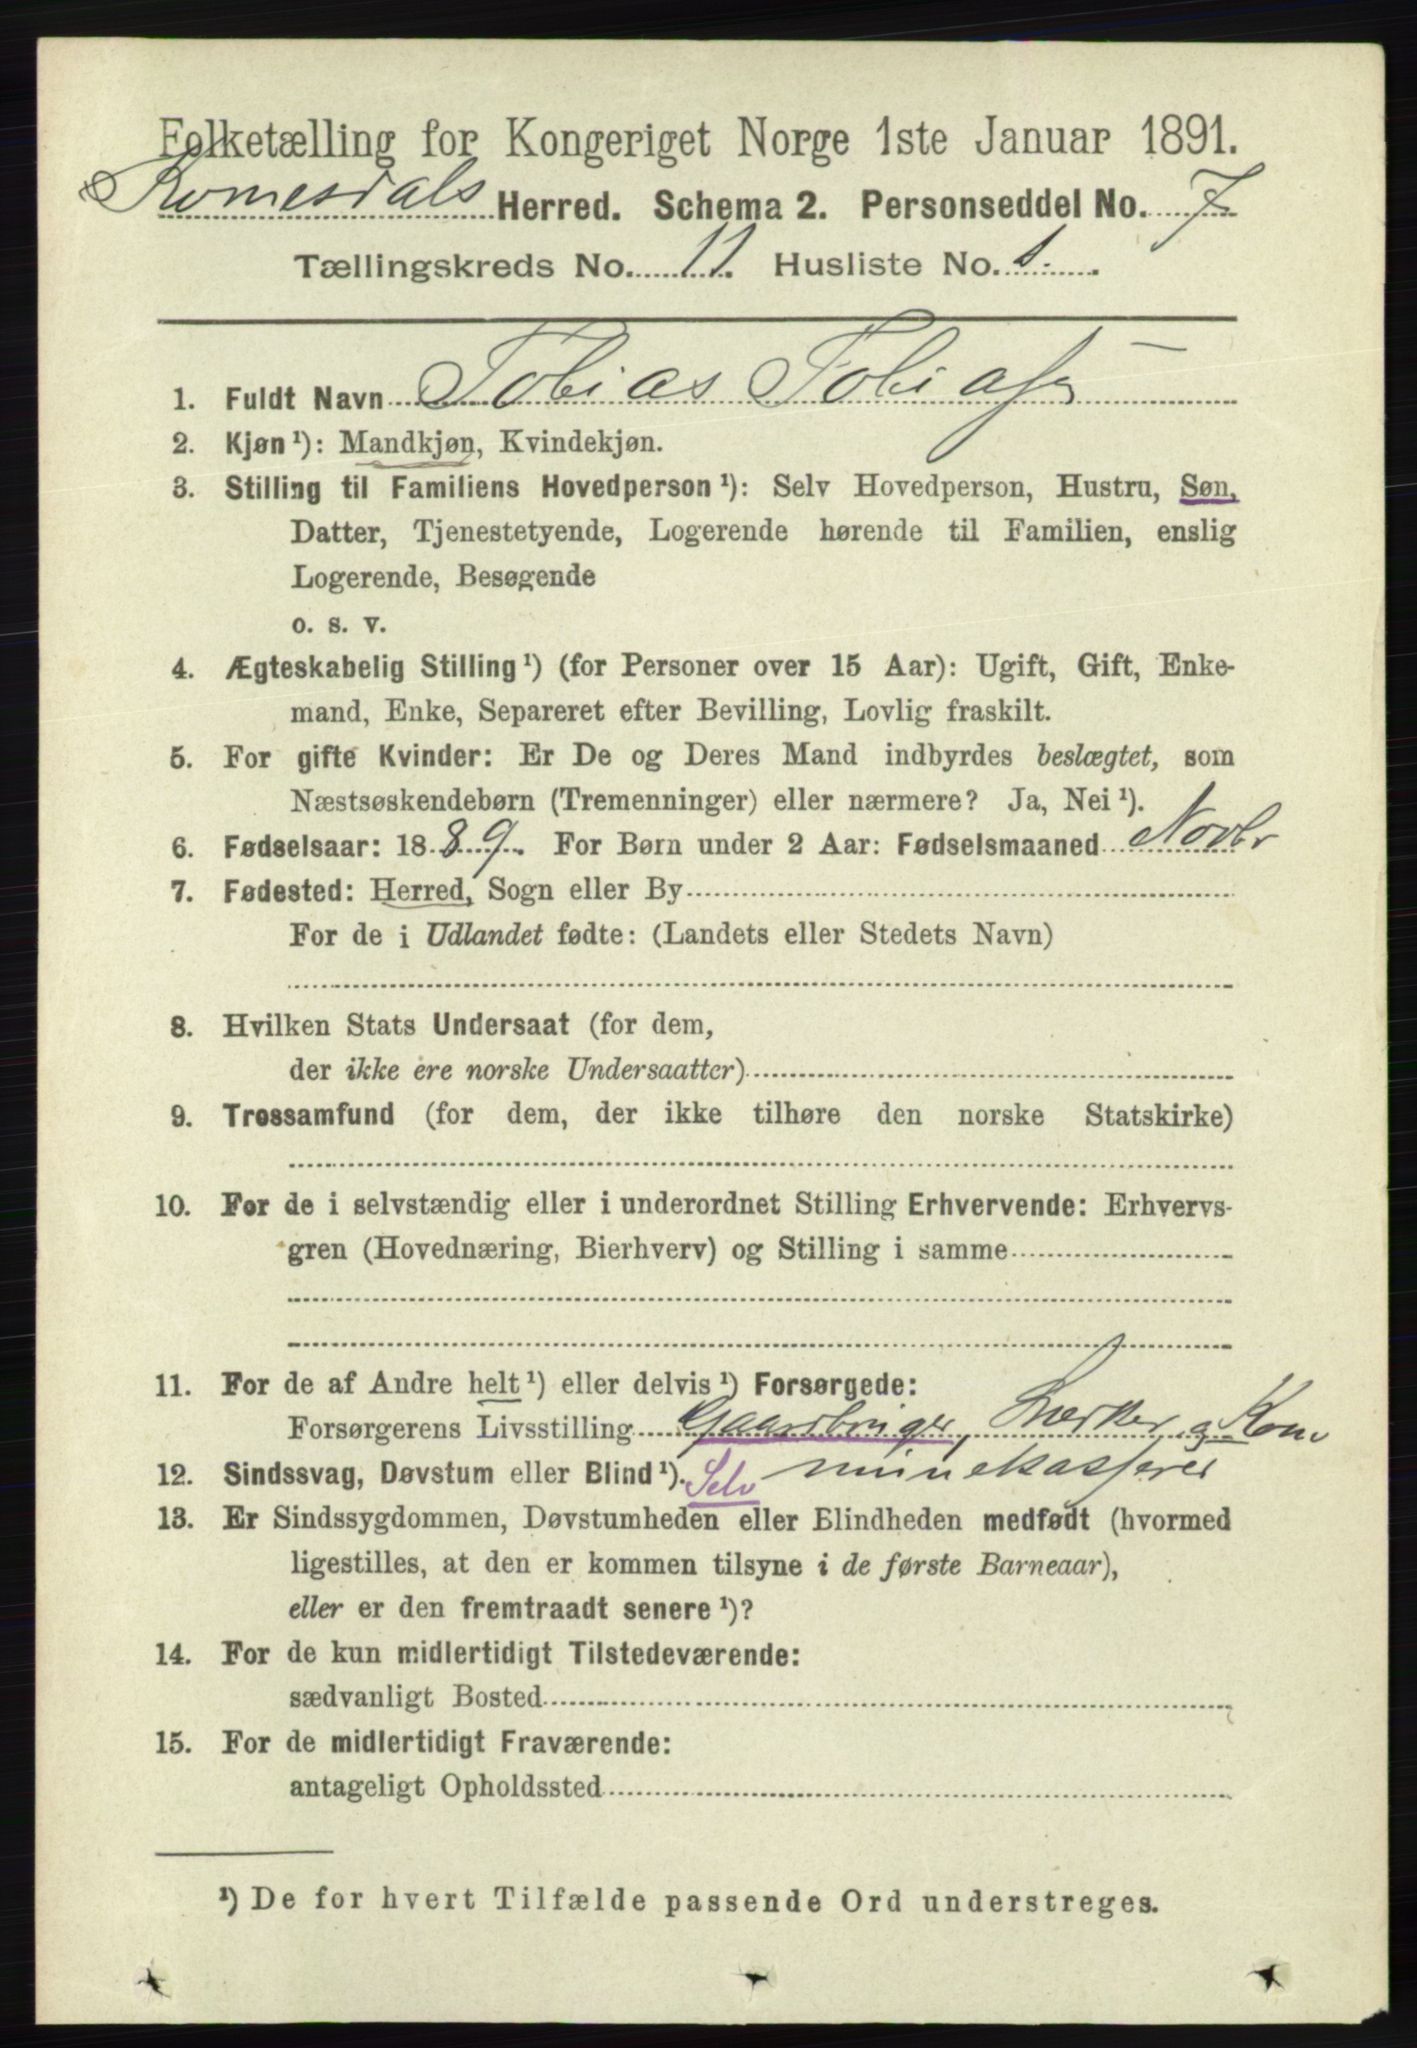 Folketælling for Kongeriget Norge 1ste Januar 1891.
Romesdals Herred. Schema 2. Personseddel No. 7
Tællingskreds No. 11. Husliste No. 1.
1. Fuldt Navn Tobias Tobiasen
2. Kjøn ¹): Mandkjøn, Kvindekjøn.
3. Stilling til Familiens Hovedperson ¹): Selv Hovedperson, Hustru, Søn,
Datter, Tjenestetyende, Logerende hørende til Familien, enslig
Logerende, Besøgende
o. s. v.
4. Ægteskabelig Stilling ¹) (for Personer over 15 Aar): Ugift, Gift, Enke-
mand, Enke, Separeret efter Bevilling, Lovlig fraskilt.
5. For gifte Kvinder: Er De og Deres Mand indbyrdes beslægtet, som
Næstsøskendebørn (Tremenninger) eller nærmere? Ja, Nei ¹).
6. Fødselsaar: 1889. For Børn under 2 Aar: Fødselsmaaned Novbr
7. Fødested: Herred, Sogn eller By
For de i Udlandet fødte: (Landets eller Stedets Navn)
8. Hvilken Stats Undersaat (for dem,
der ikke ere norske Undersaatter)
9. Trossamfund (for dem, der ikke tilhøre den norske Statskirke)
10. For de i selvstændig eller i underordnet Stilling Erhvervende: Erhvervs-
gren (Hovednæring, Bierhverv) og Stilling i samme
11. For de af Andre helt ¹) eller delvis ¹) Forsørgede:
Forsørgerens Livsstilling Gaardbruger, Snedker og Kom
12. Sindssvag, Døvstum eller Blind ¹). Selv munekasserer
13. Er Sindssygdommen, Døvstumheden eller Blindheden medfødt (hvormed
ligestilles, at den er kommen tilsyne i de første Barneaar),
eller er den fremtraadt senere ¹)?
14. For de kun midlertidigt Tilstedeværende:
sædvanligt Bosted
15. For de midlertidigt Fraværende:
antageligt Opholdssted
¹) De for hvert Tilfælde passende Ord understreges.